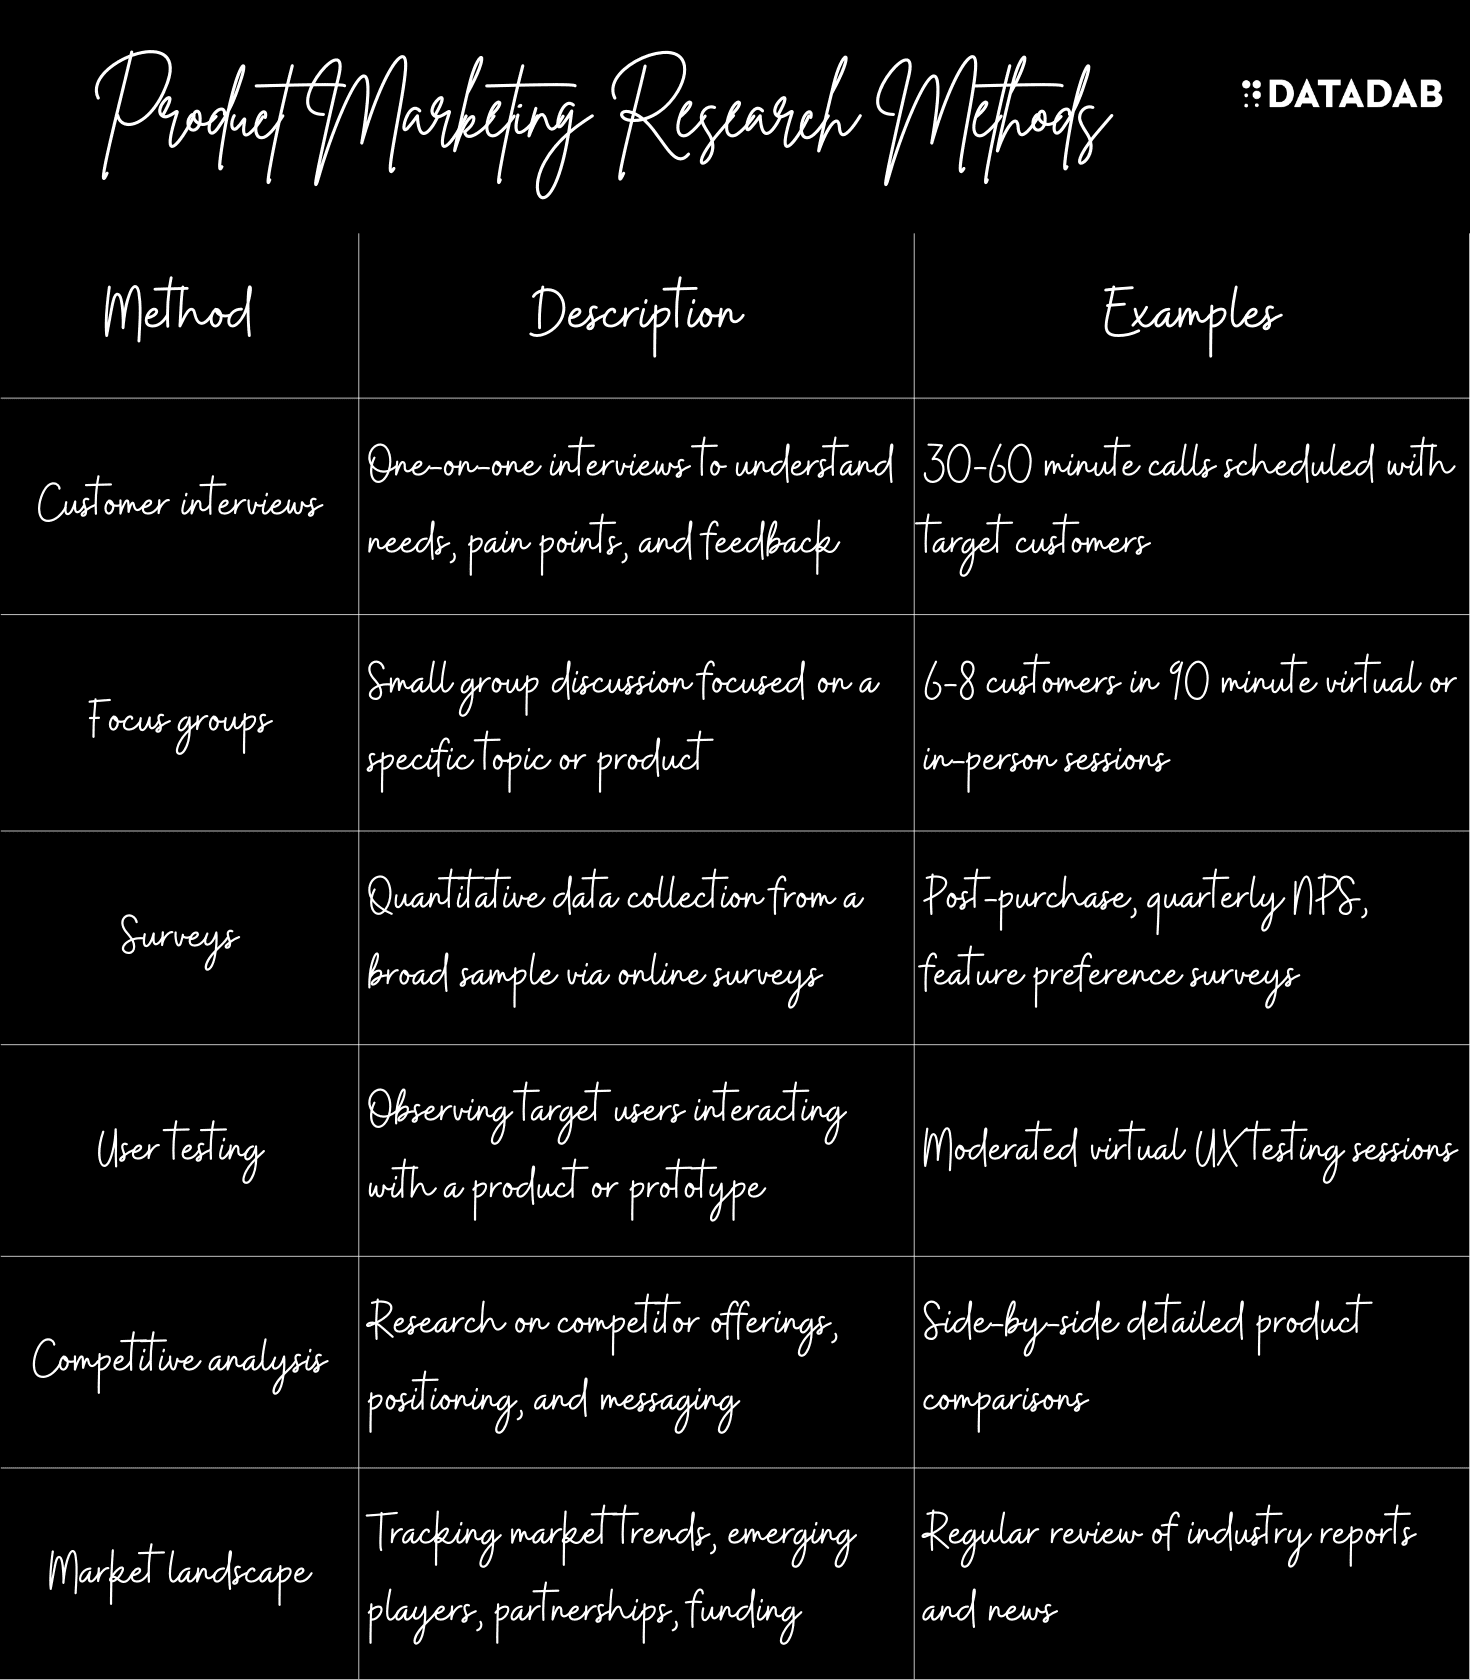 Product Marketing Research Methods
DATADAB
Method
Description
Examples
Customer interviews
One-on-one interviews to understand
needs, pain points, and feedback
30-60 minute calls scheduled with
target customers
Focus groups
Small group discussion focused on a
specific topic or product
6-8 customers in 90 minute virtual or
in-person sessions
Surveys
Quantitative data collection from a
broad sample via online surveys
Post-purchase, quarterly NPS,
feature preference surveys
User testing
Observing target users interacting
with a product or prototype
Moderated virtual UX testing sessions
Competitive analysis
Research on competitor offerings,
positioning, and messaging
Side-by-side detailed product
comparisons
Market landscape
Tracking market trends, emerging
players, partnerships, funding
Regular review of industry reports
and news